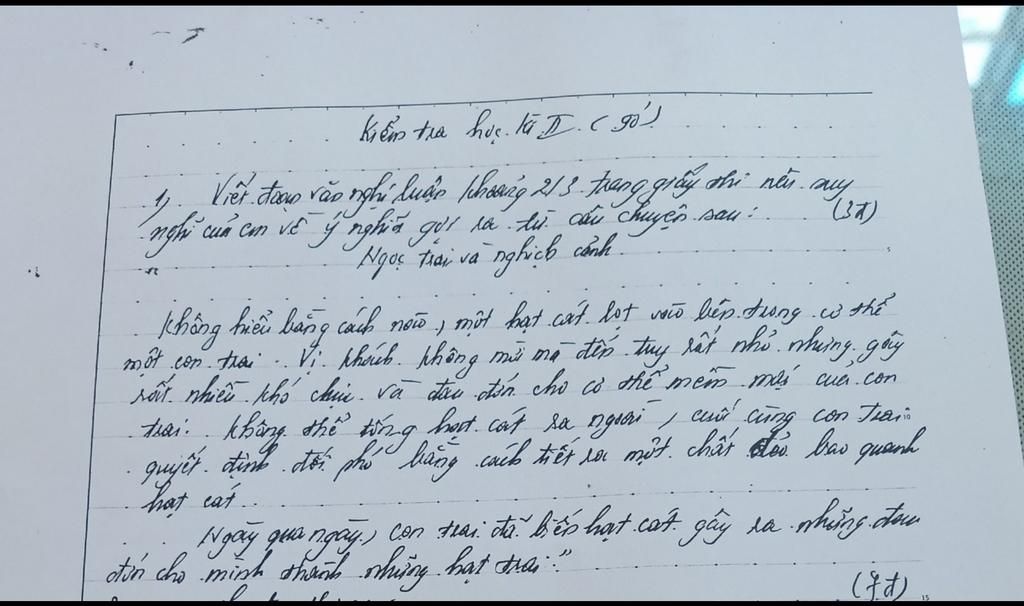 Kiểm tra học kì II (90')
1) Viết đoạn văn nghị luận khoảng 2/3 trang giấy thi nêu suy
nghĩ của em về ý nghĩa gợi ra từ câu chuyện sau: (3đ)
Ngọc trai và nghịch cảnh
Không hiểu bằng cách nào, một hạt cát lọt vào bên trong cơ thể
một con trai. Vị khách không mời mà đến tuy rất nhỏ nhưng gây
rất nhiều khó chịu và đau đớn cho cơ thể mềm mại của con
trai. Không thể tống hạt cát ra ngoài, cuối cùng con trai
quyết định đối phó bằng cách tiết ra một chất dẻo bao quanh
hạt cát.
Ngày qua ngày, con trai đã biến hạt cát gây ra những đau
đớn cho mình thành những hạt trai."
(7đ)